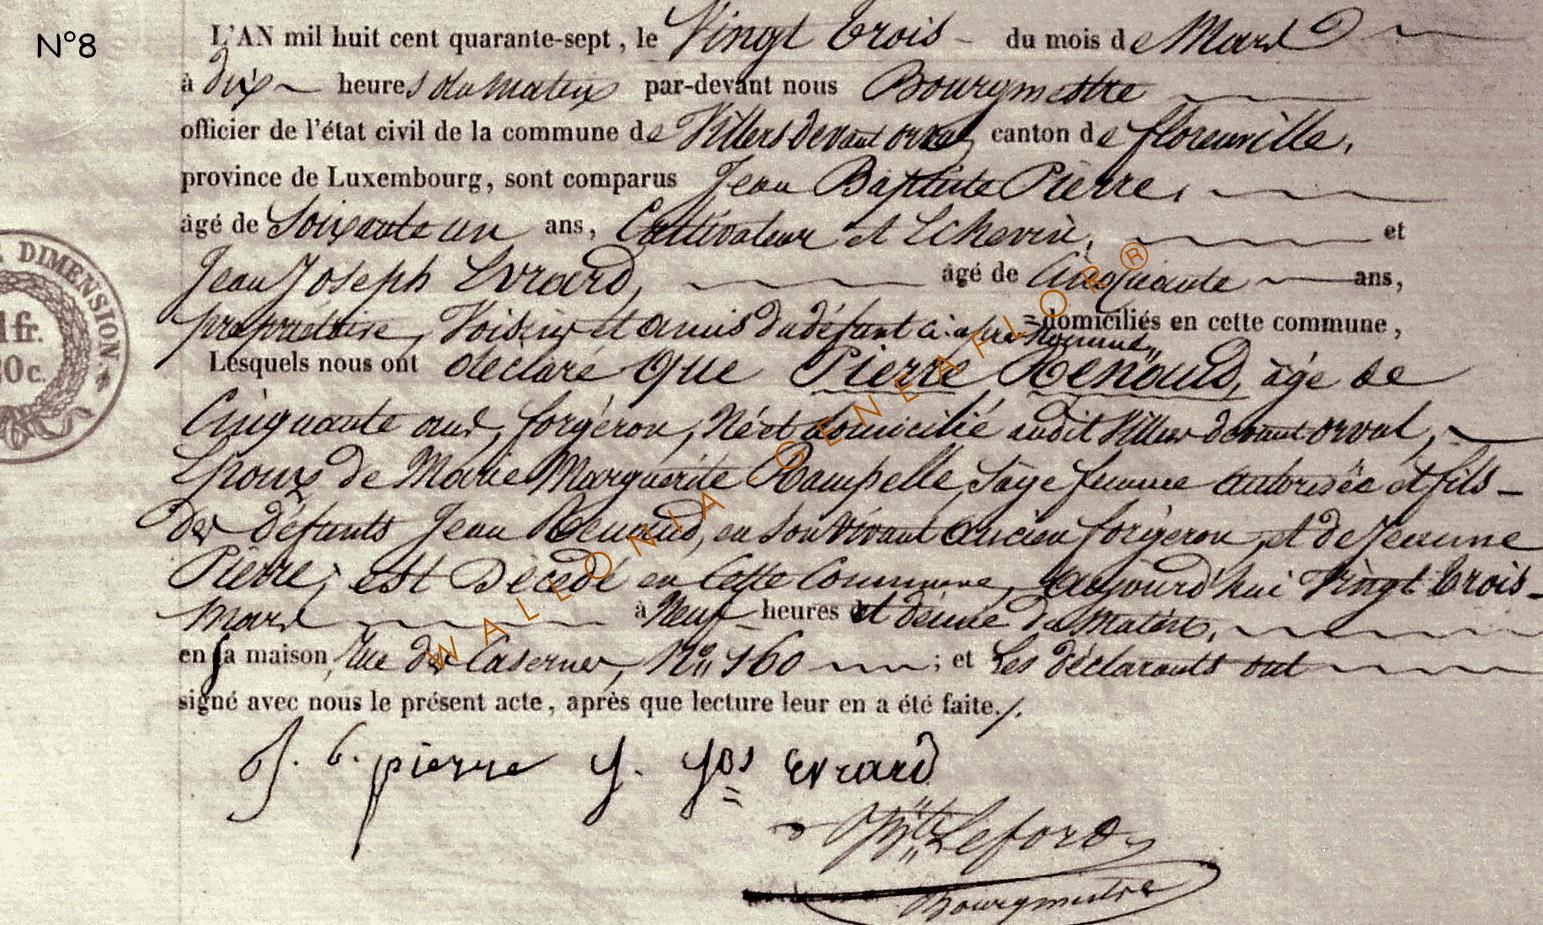 N°8
L'AN mil huit cent quarante-sept, le Vingt trois du mois de Mars
à dix heures du matin par-devant nous Bourgmestre
officier de l'état civil de la commune de Villers devant orval, canton de florenville,
province de Luxembourg, sont comparus Jean Baptiste Pierre,
âgé de Soixante un ans, Cultivateur et Echevin, et
Jean Joseph Evrard, âgé de Cinquante ans,
propriétaire, Voisins et amis du défunt ci-après nommé domiciliés en cette commune,
Lesquels nous ont déclaré que Pierre Renaud, âgé de
Cinquante ans, forgéron, Né et domicilié audit Villers devant orval,
Epoux de Marie Marguerite Rampelle, Sage femme autorisée et fils
des défunts Jean Renaud, en son vivant ancien forgeron, et de Jeanne
Pierre, est Décédé en Cette Commune, aujourd'hui Vingt trois
Mars à Neuf heures et demie du matin,
en sa maison, Rue des Casernes, N° 160 ; et Les déclarants ont
signé avec nous le présent acte, après que lecture leur en a été faite./.
J. b. pierre J. Jos Evrard
Leford
Bourgmestre
DIMENSION
1fr.
WALLONIA GENEAFLOR ®